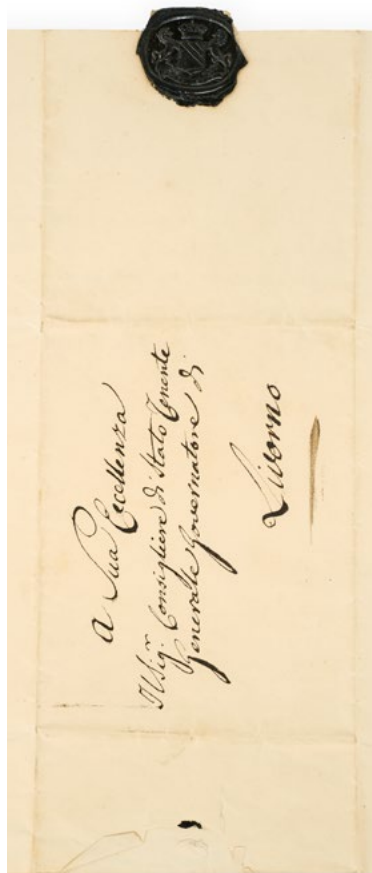 A Sua Eccellenza
Il Sig.r Consigliere di Stato Tenente
Generalle Governatore di
Livorno